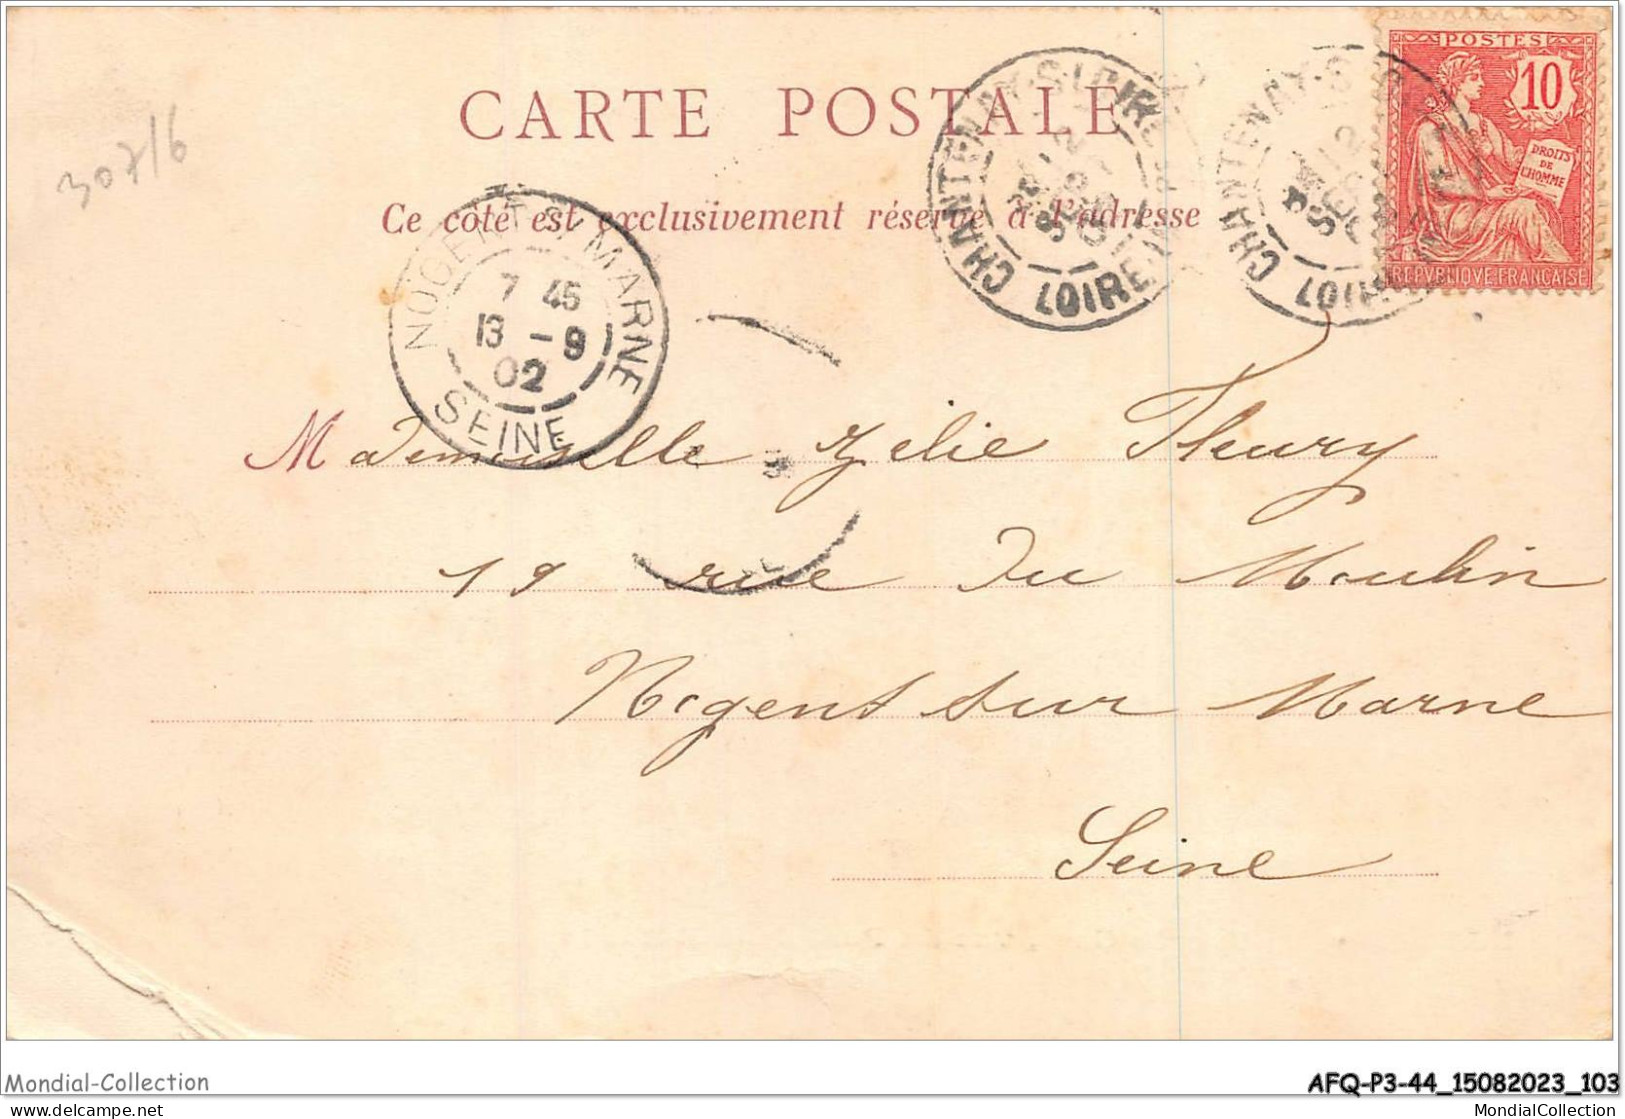 POSTES
10
DROITS
DE
L'HOMME
REPUBLIQUE FRANÇAISE
CARTE POSTALE
30716
Ce côté est exclusivement réservé à l'adresse
CHANTENAY-S-LOIRE
12
SEPT
LOIRE
CHANTENAY-S
12
SEPT
LOIRE
NOGENT S/ MARNE
7 45
13 - 9
02
SEINE
Mademoiselle Zélie Fleury
19 rue du Moulin
Nogent sur Marne
Seine
Mondial-Collection
AFQ-P3-44_15082023_103
delcampe.net
MondialCollection